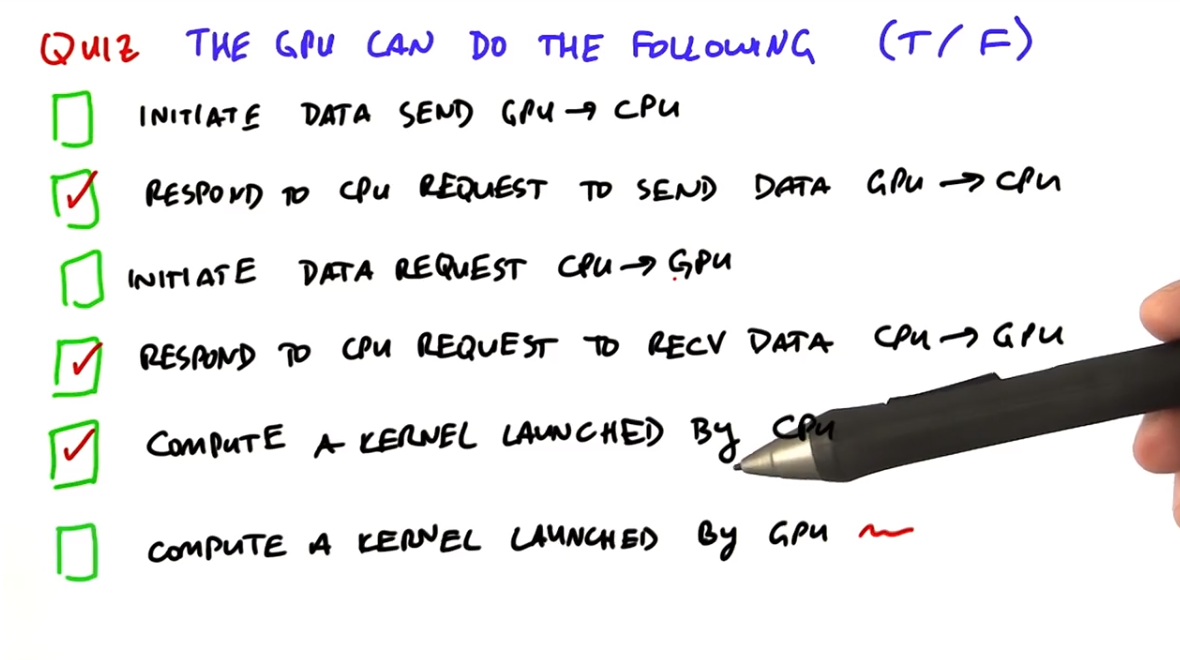 QUIZ THE GPU CAN DO THE FOLLOWING (T/F)
INITIATE DATA SEND GPU → CPU
RESPOND TO CPU REQUEST TO SEND DATA GPU → CPU
INITIATE DATA REQUEST CPU → GPU
RESPOND TO CPU REQUEST TO RECV DATA CPU → GPU
COMPUTE A KERNEL LAUNCHED BY CPU
COMPUTE A KERNEL LAUNCHED BY GPU